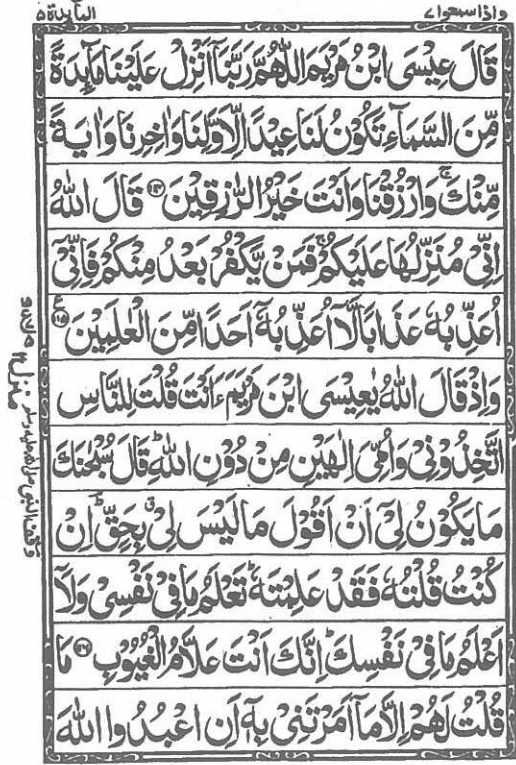 واذاسمعوا۷
المآىدة۵
قَالَ عِيْسَى ابْنُ مَرْيَمَ اللّٰهُمَّ رَبَّنَاۤ اَنْزِلْ عَلَيْنَا مَآىِٕدَةً
مِّنَ السَّمَآءِ تَكُوْنُ لَنَا عِيْدًا لِّاَوَّلِنَا وَاٰخِرِنَا وَاٰيَةً
مِّنْكَ ۚ وَارْزُقْنَا وَاَنْتَ خَيْرُ الرّٰزِقِيْنَ ۝۱۱۴ قَالَ اللّٰهُ
اِنِّيْ مُنَزِّلُهَا عَلَيْكُمْ ۚ فَمَنْ يَّكْفُرْ بَعْدُ مِنْكُمْ فَاِنِّيْۤ
اُعَذِّبُهٗ عَذَابًا لَّاۤ اُعَذِّبُهٗۤ اَحَدًا مِّنَ الْعٰلَمِيْنَ ۝۱۱۵ ع
وَاِذْ قَالَ اللّٰهُ يٰعِيْسَى ابْنَ مَرْيَمَ ءَاَنْتَ قُلْتَ لِلنَّاسِ
اتَّخِذُوْنِيْ وَاُمِّيَ اِلٰهَيْنِ مِنْ دُوْنِ اللّٰهِ ؕ قَالَ سُبْحٰنَكَ
مَا يَكُوْنُ لِيْۤ اَنْ اَقُوْلَ مَا لَيْسَ لِيْ ۗ بِحَقٍّ ؕ اِنْ
كُنْتُ قُلْتُهٗ فَقَدْ عَلِمْتَهٗ ؕ تَعْلَمُ مَا فِيْ نَفْسِيْ وَلَاۤ
اَعْلَمُ مَا فِيْ نَفْسِكَ ؕ اِنَّكَ اَنْتَ عَلَّامُ الْغُيُوْبِ ۝۱۱۶ مَا
قُلْتُ لَهُمْ اِلَّا مَاۤ اَمَرْتَنِيْ بِهٖۤ اَنِ اعْبُدُوا اللّٰهَ